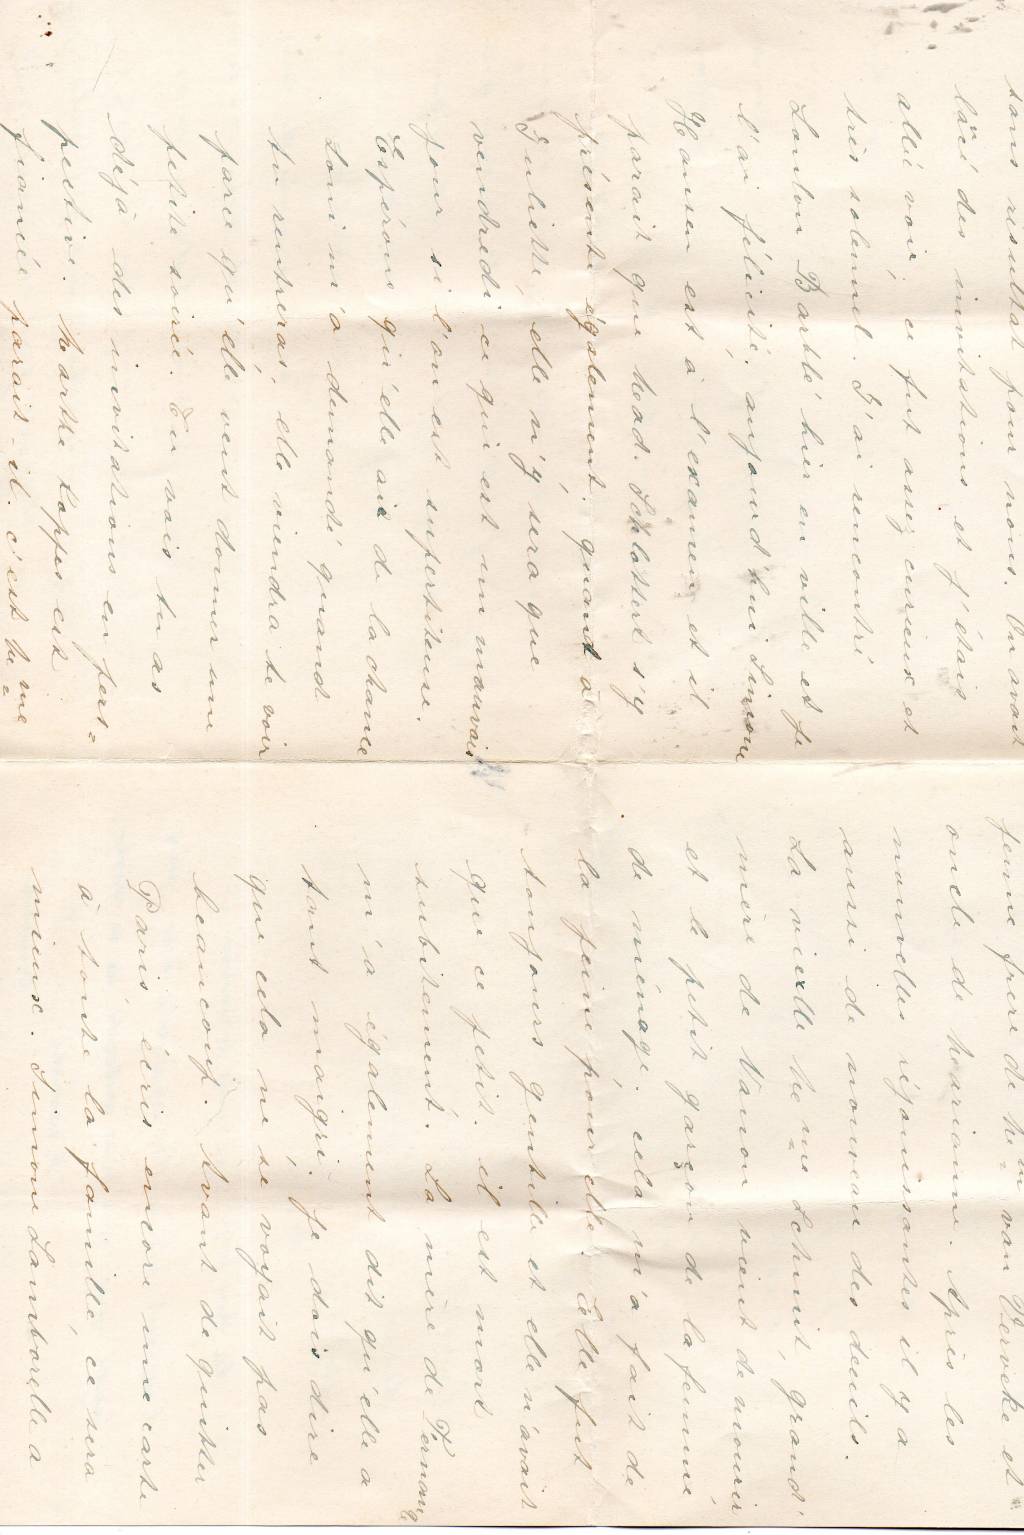 sans resultat pour nous. On avait
lácé des invitations et j'étais
allé voir, ce fut assez curieux et
très solennel. J'ai rencontré
Lonlon Barblé hier en ville et je
l'ai félicité, aujourd'hui Simone
Hansen est à l'examen et il
parait que Mad. Schlottert s'y
présente également, quant à
Juliette, elle n'y sera que
vendredi ce qui est un mauvais
jour si l'on est supertiteuse.
Espérons qu'elle ait de la chance
Loni m'a demandé quand
tu rentreras, elle viendra te voir
parce qu'elle veut donner une
petite soirée. Tu vois tu as
déjà des invitations en pers=
pective. Marthe Koppes est
fiancée parait-il. c'est le Me
jeune frere de Me van Werveke et
oncle de Marianne. Après les
nouvelles réjouissantes il y a
aussi de nouveau des deuils.
La vieille Me Schmit, grand'
mère de Nanon vient de mourir
et le petit garçon de la femme
de ménage. cela m'a fait de
la peine pour elle. Elle fut
toujours gentille et elle n'avait
que ce petit. il est mort
subitement. La mère de Fernande
m'a également dit qu'elle a
tant maigri, je dois dire
que cela ne se voyait pas
beaucoup. Avant de quitter
Paris, écris encore une carte
à toute la famille, ce sera
mieux. Simone Lamborelle a